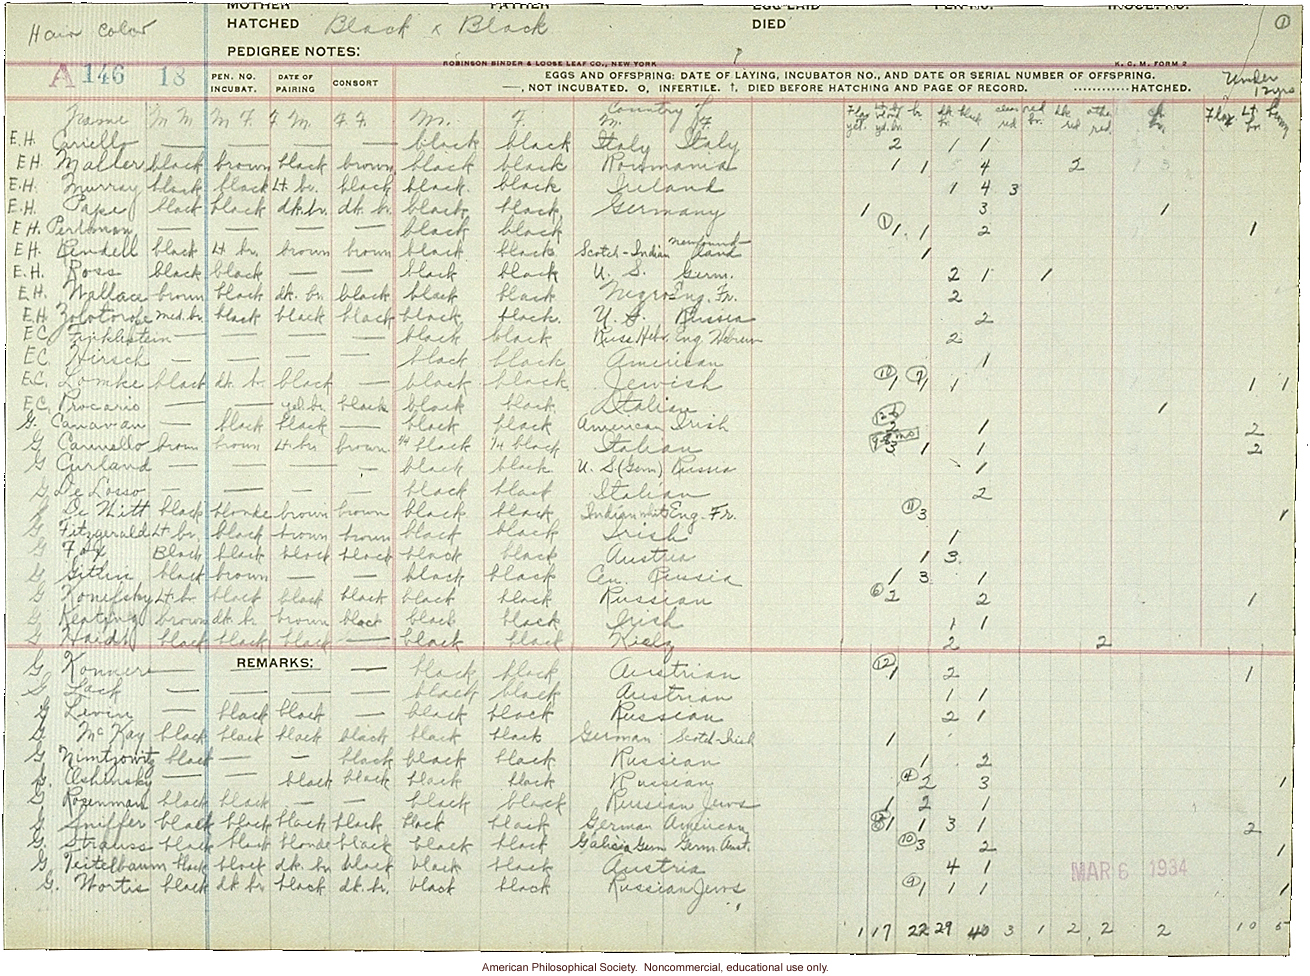 MOTHER FATHER EGG LAID PEN NO.
Hair Color HATCHED Black x Black DIED ①
PEDIGREE NOTES:
ROBINSON BINDER & LOOSE LEAF CO., NEW YORK K. C. M. FORM 2
A 146 18 PEN. NO. INCUBAT. DATE OF PAIRING CONSORT EGGS AND OFFSPRING: DATE OF LAYING, INCUBATOR NO., AND DATE OR SERIAL NUMBER OF OFFSPRING. Under 12 yrs
——, NOT INCUBATED. O, INFERTILE. †, DIED BEFORE HATCHING AND PAGE OF RECORD. ............HATCHED.
Name M M M F F M. F F M. F. Country of M. F
E.H. Cariello — — — — black black Italy Italy 2 1 1
E.H. black brown black brown black black Roumania 1 1 4 2
E.H. Murray black black Lt. br. black black black Ireland 1 4 3
E.H. Pape black black dk. br. dk. br. black black Germany 1 3 1
E.H. Perlman — — — — black black ① 1 1 2 1
E.H. black Lt. br. brown brown black black Scotch-Indian Newfoundland 1
E.H. Ross black black — — black black U. S. Germ. 2 1 1
E.H. Wallace brown black dk. br. black black black Negro Eng. Fr. 2
E.H. med. br. black black black black black U. S. Russia 2
E.C. Finklestein — — — — black black Russ Hebr. Eng Hebrew 2
E.C. Hirsch — — — — black black American 1
E.C. Lomke black dk. br. black — black black Jewish ⑩ 1 ⑦ 1 1 1 1
E.C. Procario — — yel. br. black black black Italian 1
G. Canavan — black black — black black American Irish 2 1 2
G brown brown Lt. br. brown black black Italian 3 1 1 2
G Gurland — — — — black black U. S (Germ) Russia 1
G De Losso — — — — black black Italian 2
G De Witt black blonde brown brown black black Indian white Eng. Fr. ⑪ 3 1
G Fitzgerald Lt. br. black brown brown black black Irish 1
G Fox Black black black black black black Austria 1 3
G Gitlin black brown — — black black Russia 1 3 1
G Konefsky Lt. br. black black black black black Russian ⑥ 2 1
G Keating brown dk. br. brown black black black Irish 1 1
G black black black — black black 2 2
REMARKS:
G — — black black Austrian ⑫ 1 2 1
G Lack — — — — black black Austrian 1 1
G Levin — black black — black black Russian 2 1
G McKay black black black black black black German Scotch-Irish 1
G Nimtzowitz black — — black black black Russian 1 2
G. Oshinsky — — black black black black Russian ④ 2 3 1
G Rosenman black black — — black black Russian Jews 1 2 1
G. Sniffer black black black black black black German American 1 1 3 1 2
G. Strauss black black blonde black black black Galicia Germ Germ. Aust. ⑩ 3 2 1
G. Teitelbaum black black dk. br. black black black Austria 4 1
G. Wortis black dk. br. black dk. br. black black Russian Jews ⑨ 1 1 1 1
MAR 6 1934
1 17 22 29 40 3 1 2 2 2 10 5
American Philosophical Society. Noncommercial, educational use only.